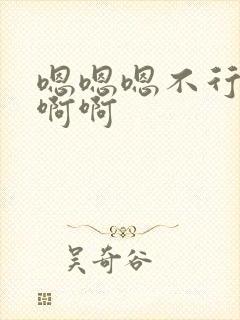 嗯嗯嗯不行
啊啊
吴奇谷